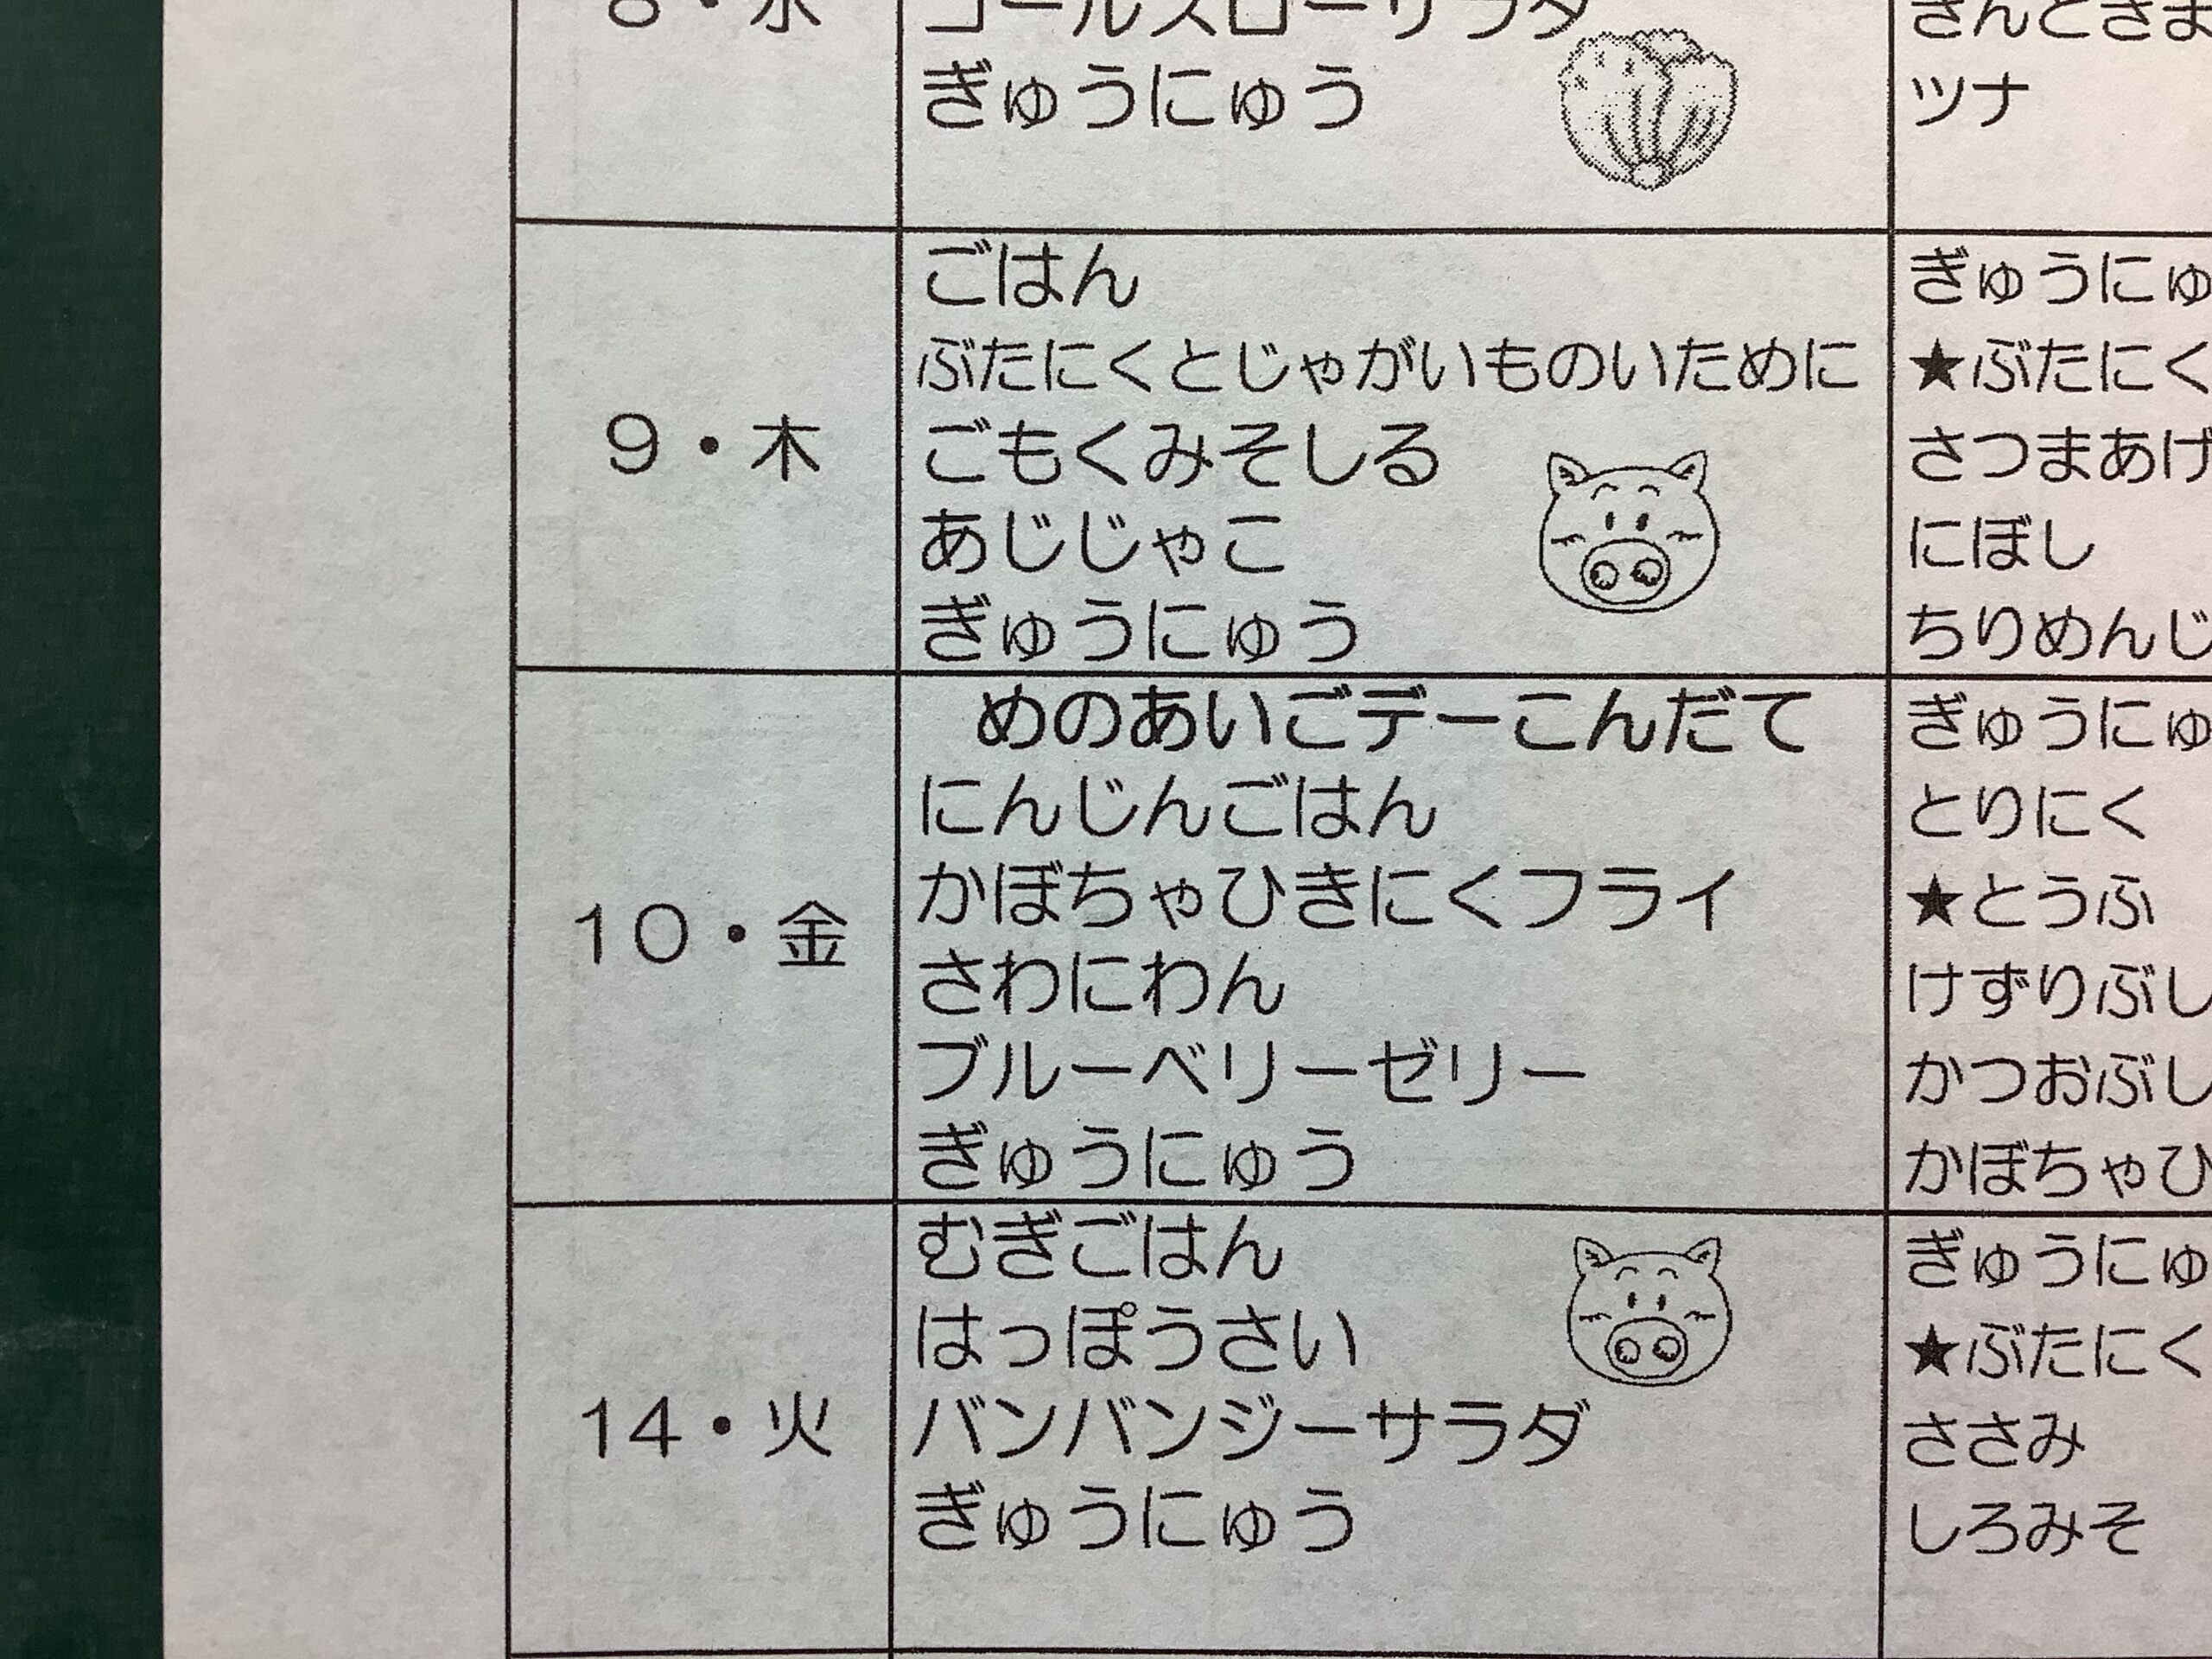 8・水
コールスローサラダ
ぎゅうにゅう
ツナ
9・木
ごはん
ぶたにくとじゃがいものいために
ごもくみそしる
あじじゃこ
ぎゅうにゅう
ぎゅうにゅ
★ぶたにく
さつまあげ
にぼし
ちりめんじ
10・金
めのあいごデーこんだて
にんじんごはん
かぼちゃひきにくフライ
さわにわん
ブルーベリーゼリー
ぎゅうにゅう
ぎゅうにゅ
とりにく
★とうふ
けずりぶし
かつおぶし
かぼちゃひ
14・火
むぎごはん
はっぽうさい
バンバンジーサラダ
ぎゅうにゅう
ぎゅうにゅ
★ぶたにく
ささみ
しろみそ